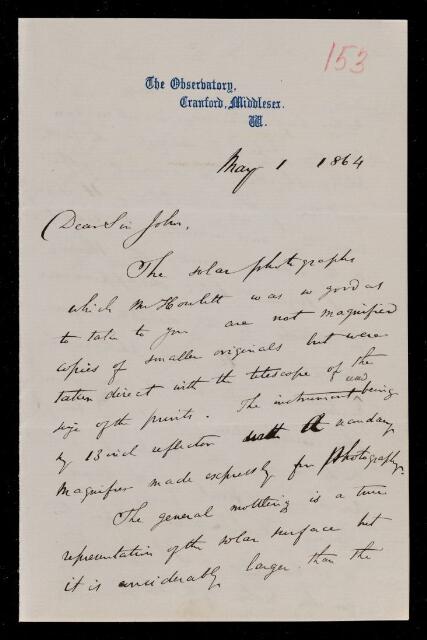 153
The Observatory,
Cranford, Middlesex.
W.
May 1 1864
Dear Sir John,
The solar photographs
which Mr Howlett was so good as
to take to you are not magnified
copies of smaller originals but were
taken direct with the telescope of the
size of the prints. The instrument used being
my 13 inch reflector with A secondary
magnifier made expressly for photography.
The general mottling is a true
representation of the solar surface but
it is considerably larger than the